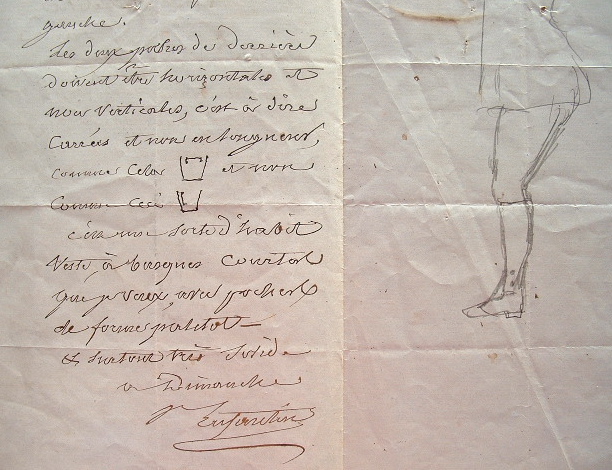 gauche.
les deux poches de derrière
doivent être horizontales et
non verticales, c'est à dire
Carrées et non en longueur,
comme Cela et non
Comme Ceci
c'est une sorte d'habit
Veste, à basques Courtes
que je veux, avec poches
de forme paletot —
et surtout très solide
a Dimanche
Enfantin